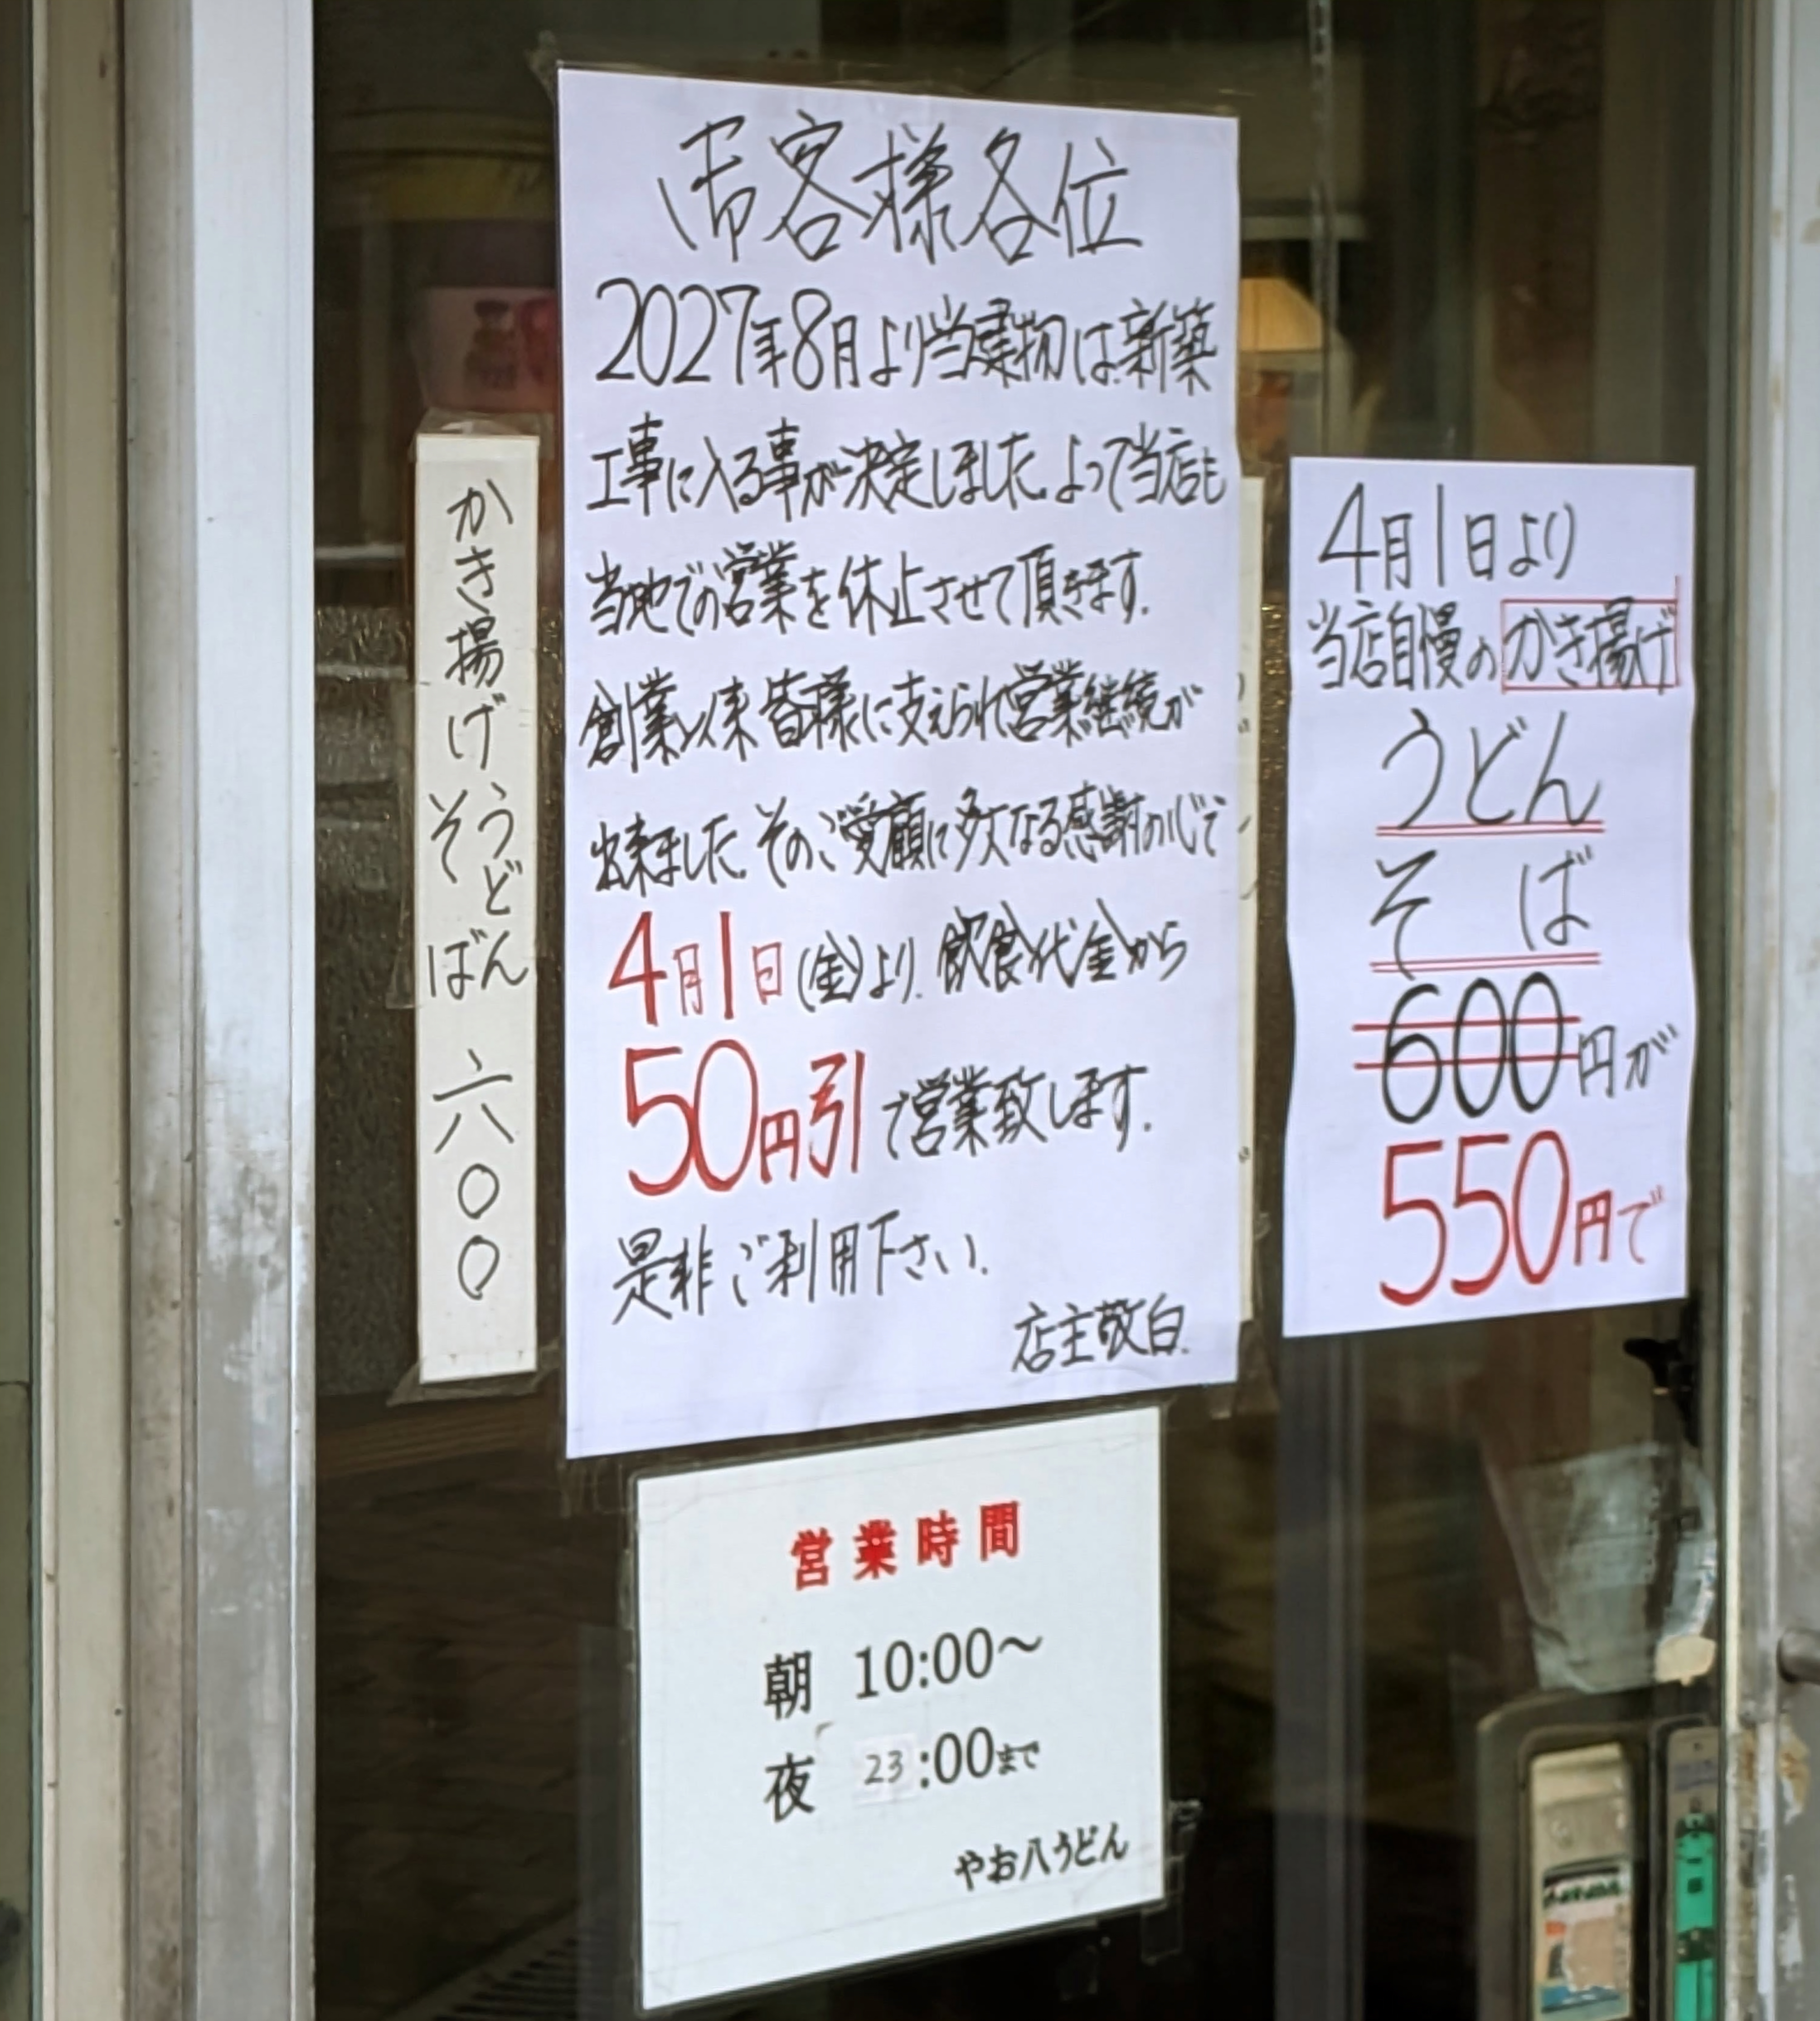 かき揚げ
うどん
そば
六〇〇
御客様各位
2027年8月より当建物は新築
工事に入る事が決定しました。よって当店も
当地での営業を休止させて頂きます.
創業以来皆様に支えられ営業継続が
出来ました。そのご愛顧に多大なる感謝の心で
4月1日(金)より.飲食代金から
50円引で営業致します.
是非ご利用下さい.
店主敬白.
4月1日より
当店自慢のかき揚げ
うどん
そば
600円が
550円で
営業時間
朝 10:00～
夜 23:00まで
やお八うどん